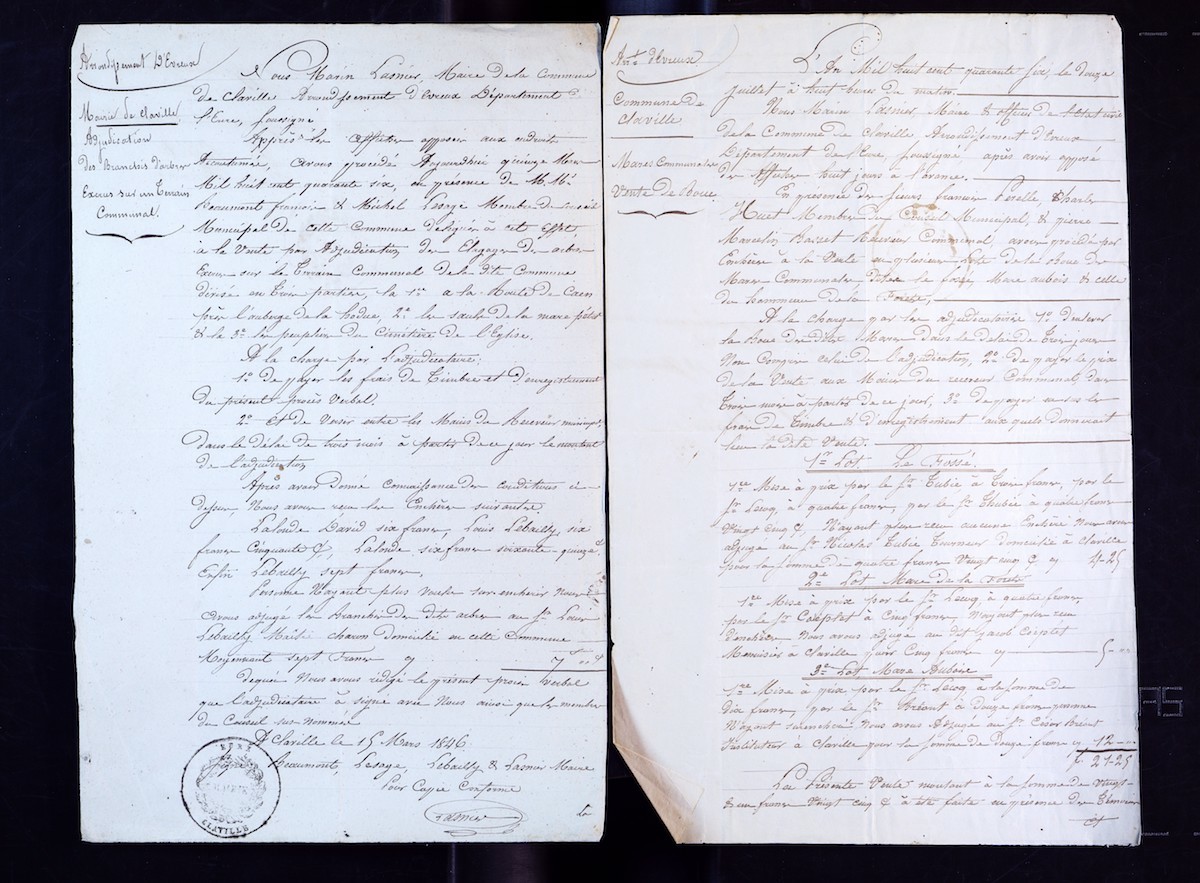 Arrondissement D'Evreux
Mairie de Claville
Adjudication
des Branchis d'arbres
Excrus sur un Terrain
Communal.
Nous Marin Lasnier, Maire de la Commune
de Claville Arrondissement d'Evreux Département de
l'Eure, soussigné
Après les affiches apposées aux endroits
Accoutumés, avons procédé Aujourdhui quinze Mars
Mil huit cent quarante six, en présence de M.Mrs
Beaumont françois & Michel Lesage Membres du conseil
Municipal de cette Commune désignés à cet Effet,
à la Vente par Adjudication des Elagages des arbres
Excrus sur le Terrain Communal de la dite Commune
divisé en Trois parties, la 1re a la Route de Caen
près l'auberge de la hodue, 2o les saules de la mare
& la 3e les peupliers du Cimetière de l'Eglise.
A la charge par L'adjudicataire:
1o de payer les frais de Timbre et d'enregistrement
du présent procès Verbal.
2o Et de Verser entre les Mains du Receveur municipal,
dans le délai de trois mois à partir de ce jour le montant
de l'adjudication
Après avoir donné connaissance des conditions ci-
dessus, Nous avons reçu les Enchères suivantes.
Lalonde David six francs, Louis Lebailly six
francs Cinquante c, Lalonde six francs soixante-quinze c
Enfin Lebailly sept francs.
Personne N'ayant plus voulu surenchérir Nous
avons adjugé les Branches des dits arbres au Sr Louis
Lebailly Maître charon domicilié en cette Commune
Moyennant sept Francs 7
Dequoi Nous avons rédigé le présent procès Verbal
que l'adjudicataire à signé avec Nous ainsi que les membres
du Conseil sus-nommés
A Claville le 15 Mars 1846
Beaumont, Lesage, Lebailly & Lasnier Maire
Pour Copie Conforme
Lasnier
La
EURE
CLAVILLE
Arrt d'Evreux
Commune de
Claville
Mares Communales
Vente de Boue
L'An Mil huit cent quarante six le Douze
juillet à huit heures du matin.
Nous Marin Lasnier, Maire & officier de
de la Commune de Claville Arrondissement d'Evreux
Département de l'Eure soussigné après avoir apposé
des affiches huit jours à l'avance.
En présence des Sieurs francois Charles
Huet Membres du Conseil Municipal, & pierre
Marcelin Basset Receveur Communal, avons procédé par
Enchère à la Vente en plusieurs lots de la Boue des
Mares Communales, dites le fossé, Mare aubois & celle
du hammeau de la Foret,
A la charge par les adjudicataires 1o d'enlever
la Boue des dites Mares dans le délai de Trois jours
Non Compris celui de l'adjudication, 2o de payer le prix
de la Vente aux Mains du receveur Communal dans
Trois mois à partir de ce jour, 3o de payer en sus les
frais de Timbre & d'enregistrement aux quels donnerait
lieu la dite Vente.
1er Lot Le Fossé.
1re Mise à prix par le Sr Tubie à Trois francs, par le
Sr Lecoq à quatre francs, par le Sr à quatre francs
Vingt cinq c, N'ayant plus reçu aucune Enchère Nous avons
adjugé au Sr Nicolas Tubie Tourneur domicilié à Claville
pour la Somme de quatre francs Vingt cinq c 4-25
2e Lot Mare de la Foret
1re Mise à prix par le Sr Lecoq à quatre francs,
par le Sr Couplet à Cinq francs N'ayant plus reçu
d'enchère Nous avons adjugé au dit jacob Couplet
Menuisier à Claville pour Cinq francs 5-
3e Lot Mare Aubois
1re Mise à prix par le Sr Lecoq à la somme de
Dix francs, par le Sr Bréant à Douze francs personne
N'ayant surenchéri Nous avons Adjugé au Sr César Bréant
Instituteur à Claville pour la Somme de Douze francs 12
T. 21-25
La Présente Vente montant à la Somme de Vingt-
& un francs Vingt cinq c à été faite en présence des Témoins
et